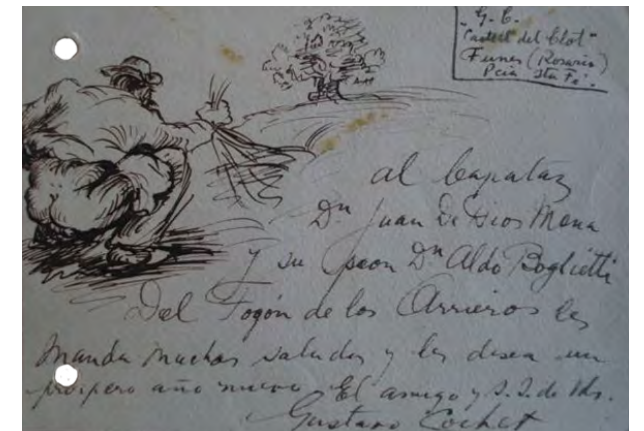 G. C.
"Castell del Clot"
Funes (Rosario)
Pcia Sta Fé.
al Capataz
Dn Juan De Dios Mena
y su peon Dn Aldo Boglietti
Del Fogón de los Arrieros les
manda muchos saludos y les desea un
próspero año nuevo El amigo y S. S. de Vds.
Gustavo Cochet